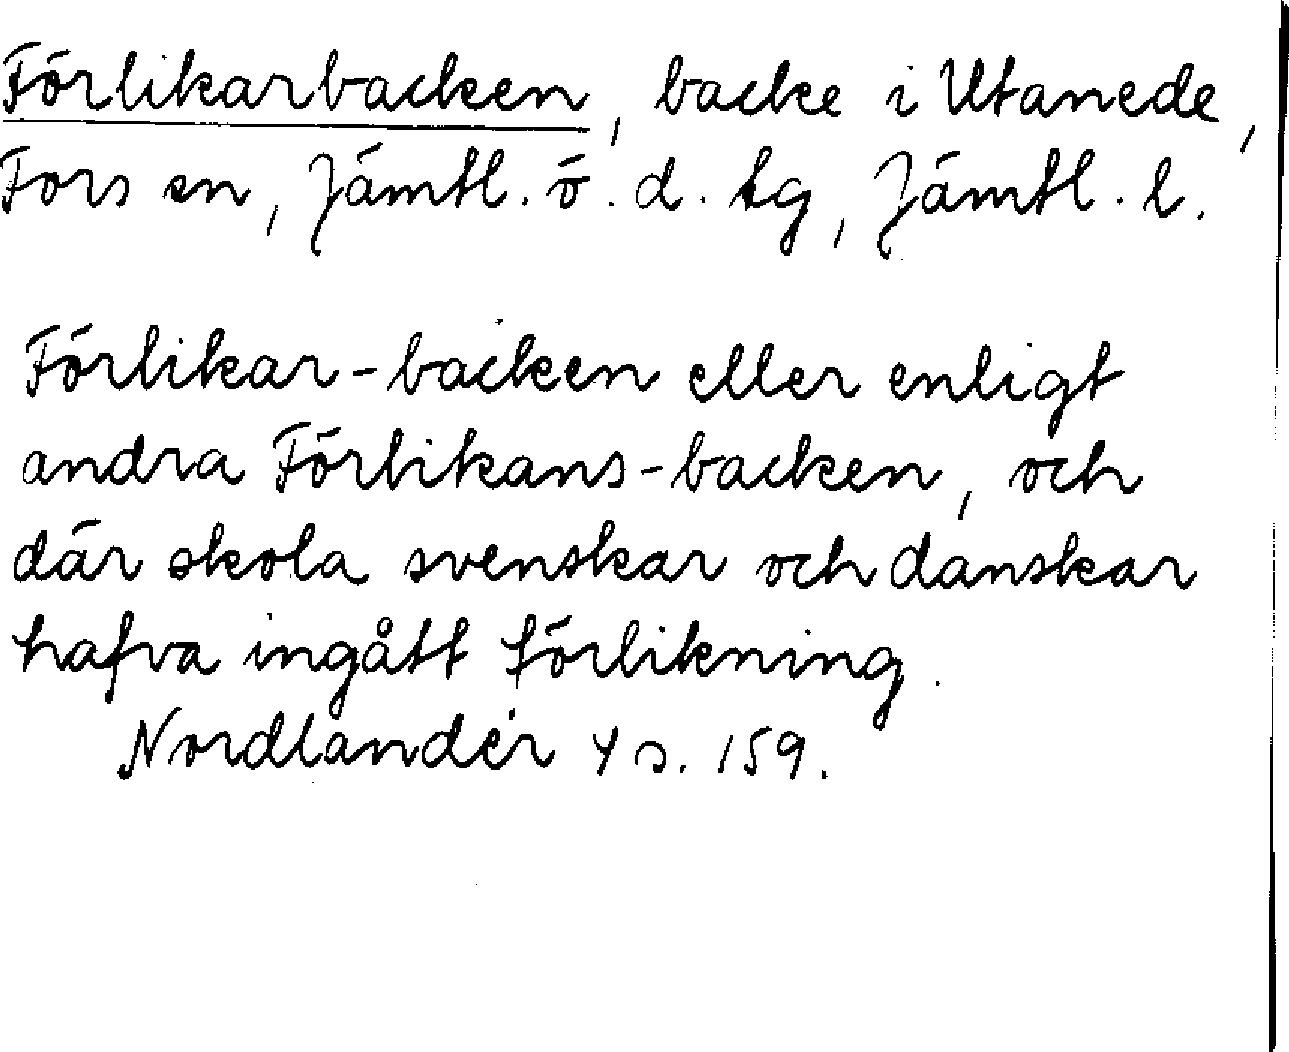 Förlikarbacken, backe i Utanede,
Fors sn, Jämtl. ö. d. tg, Jämtl. l.
Förlikar-backen eller enligt
andra Förlikans-backen, och
där skola svenskar och danskar
hafva ingått förlikning.
Nordlander 4 s. 159.